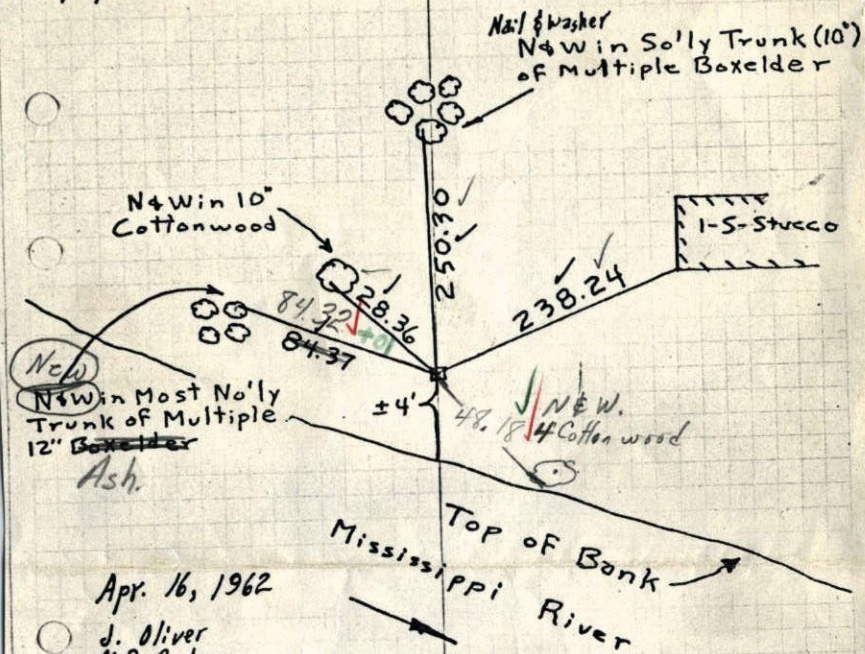 Nail & Washer
N&W in So'ly Trunk (10")
of Multiple Boxelder
N&W in 10"
Cottonwood
250.30
1-S-Stucco
238.24
28.36
84.32
+01
84.37
New
N&W in Most No'ly
Trunk of Multiple
12" Boxelder
Ash.
±4'
48.18
N & W.
4 Cottonwood
Top of Bank
Mississippi River
Apr. 16, 1962
J. Oliver